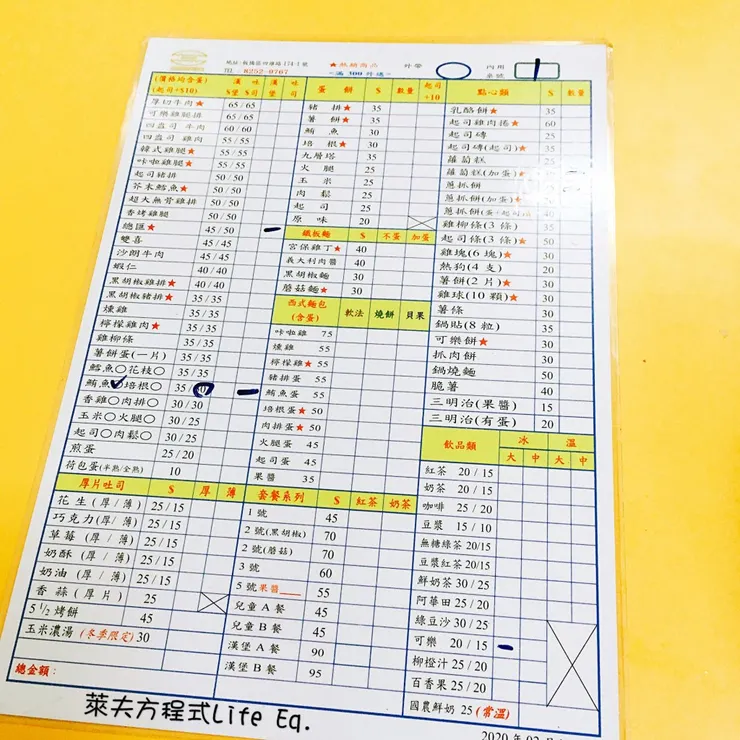 地址:板橋區四維路174-1號
TEL 8252-0767
★熱銷商品
~滿300外送~
外帶
內用
桌號
(價格均含蛋)
(起司+$10)
漢堡$
吐司$
漢堡
吐司
厚切牛肉★ 65/65
可樂雞腿排 65/65
四盎司 牛肉 60/60
四盎司 雞肉 55/55
韓式雞腿★ 55/55
咔啦雞腿★ 55/55
起司豬排 50/50
芥末鱈魚★ 50/50
超大無骨雞排 50/50
香烤雞腿 45/50
總匯★ 50/50
雙喜 45/45
沙朗牛肉 45/45
蝦仁 40/40
黑胡椒雞排★ 40/40
黑胡椒豬排★ 35/35
燻雞 35/35
檸檬雞肉★ 35/35
雞柳條 35/35
薯餅蛋(一片) 35/35
鱈魚○花枝○ 35/35
鮪魚○培根○ 35/
香雞○肉排○ 30/30
玉米○火腿○ 30/25
起司○肉鬆○ 30/25
煎蛋 25/20
荷包蛋(半熟/全熟) 10
厚片吐司 $ 厚 薄
花生(厚/薄) 25/15
巧克力(厚/薄) 25/15
草莓(厚/薄) 25/15
奶酥(厚/薄) 25/15
奶油(厚/薄) 25/15
香蒜(厚片) 25
5 1/2 烤餅 45
玉米濃湯(冬季限定) 30
總金額:
蛋餅 $ 數量 起司+10
豬排★ 35
薯餅★ 35
鮪魚 30
培根★ 30
九層塔 35
火腿 25
玉米 25
肉鬆 25
起司 25
原味 20
鐵板麵 $ 不蛋 加蛋
宮保雞丁★ 40
義大利肉醬 40
黑胡椒麵 30
蘑菇麵★ 30
西式麵包
(含蛋)
軟法 燒餅 貝果
咔啦雞 75
燻雞 55
檸檬雞★ 55
豬排蛋 55
鮪魚蛋 55
培根蛋★ 50
肉排蛋★ 50
火腿蛋 45
起司蛋 45
果醬 35
套餐系列 $ 紅茶 奶茶
1號 45
2號(黑胡椒) 70
2號(蘑菇) 70
3號 60
5號果醬___ 55
兒童A餐 45
兒童B餐 45
漢堡A餐 90
漢堡B餐 95
點心類 $ 數量
乳酪餅★ 35
起司雞肉捲★ 60
起司磚 25
起司磚(起司)★ 35
蘿蔔糕
蘿蔔糕(加蛋)★
蔥抓餅
蔥抓餅(加蛋)★
雞柳條(3條) 35
起司條(3條)★ 50
雞塊(6塊)★ 30
熱狗(4支) 20
薯餅(2片)★ 30
雞球(10顆)★ 30
薯條 30
鍋貼(8粒) 35
可樂餅★ 30
抓肉餅 50
鍋燒麵 50
脆薯 40
三明治(果醬) 15
三明治(有蛋) 20
飲品類 冰 溫
大 中 大 中
紅茶 20/15
奶茶 20/15
咖啡 25/20
豆漿 15/10
無糖綠茶 20/15
豆漿紅茶 20/15
鮮奶茶 30/25
阿華田 25/20
綠豆沙 30/25
可樂 20/15
柳橙汁 25/20
百香果 25/20
國農鮮奶 25(常溫)
萊夫方程式Life Eq.